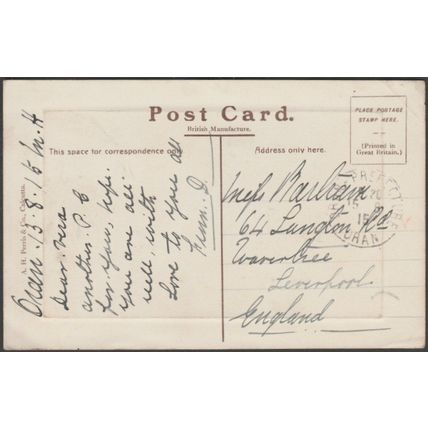 Post Card.
British Manufacture.
This space for correspondence only.
Address only here.
PLACE POSTAGE
STAMP HERE.
(Printed in
Great Britain.)
A. H. Perris & Co., Calcutta.
Oran 13.8.15
Dear Vera
another P. C
for you, hope
you are all
well, with
Love to you all
Miss Bartram
64 Langton Rd
Wavertree
Leverpool
England
ORAN